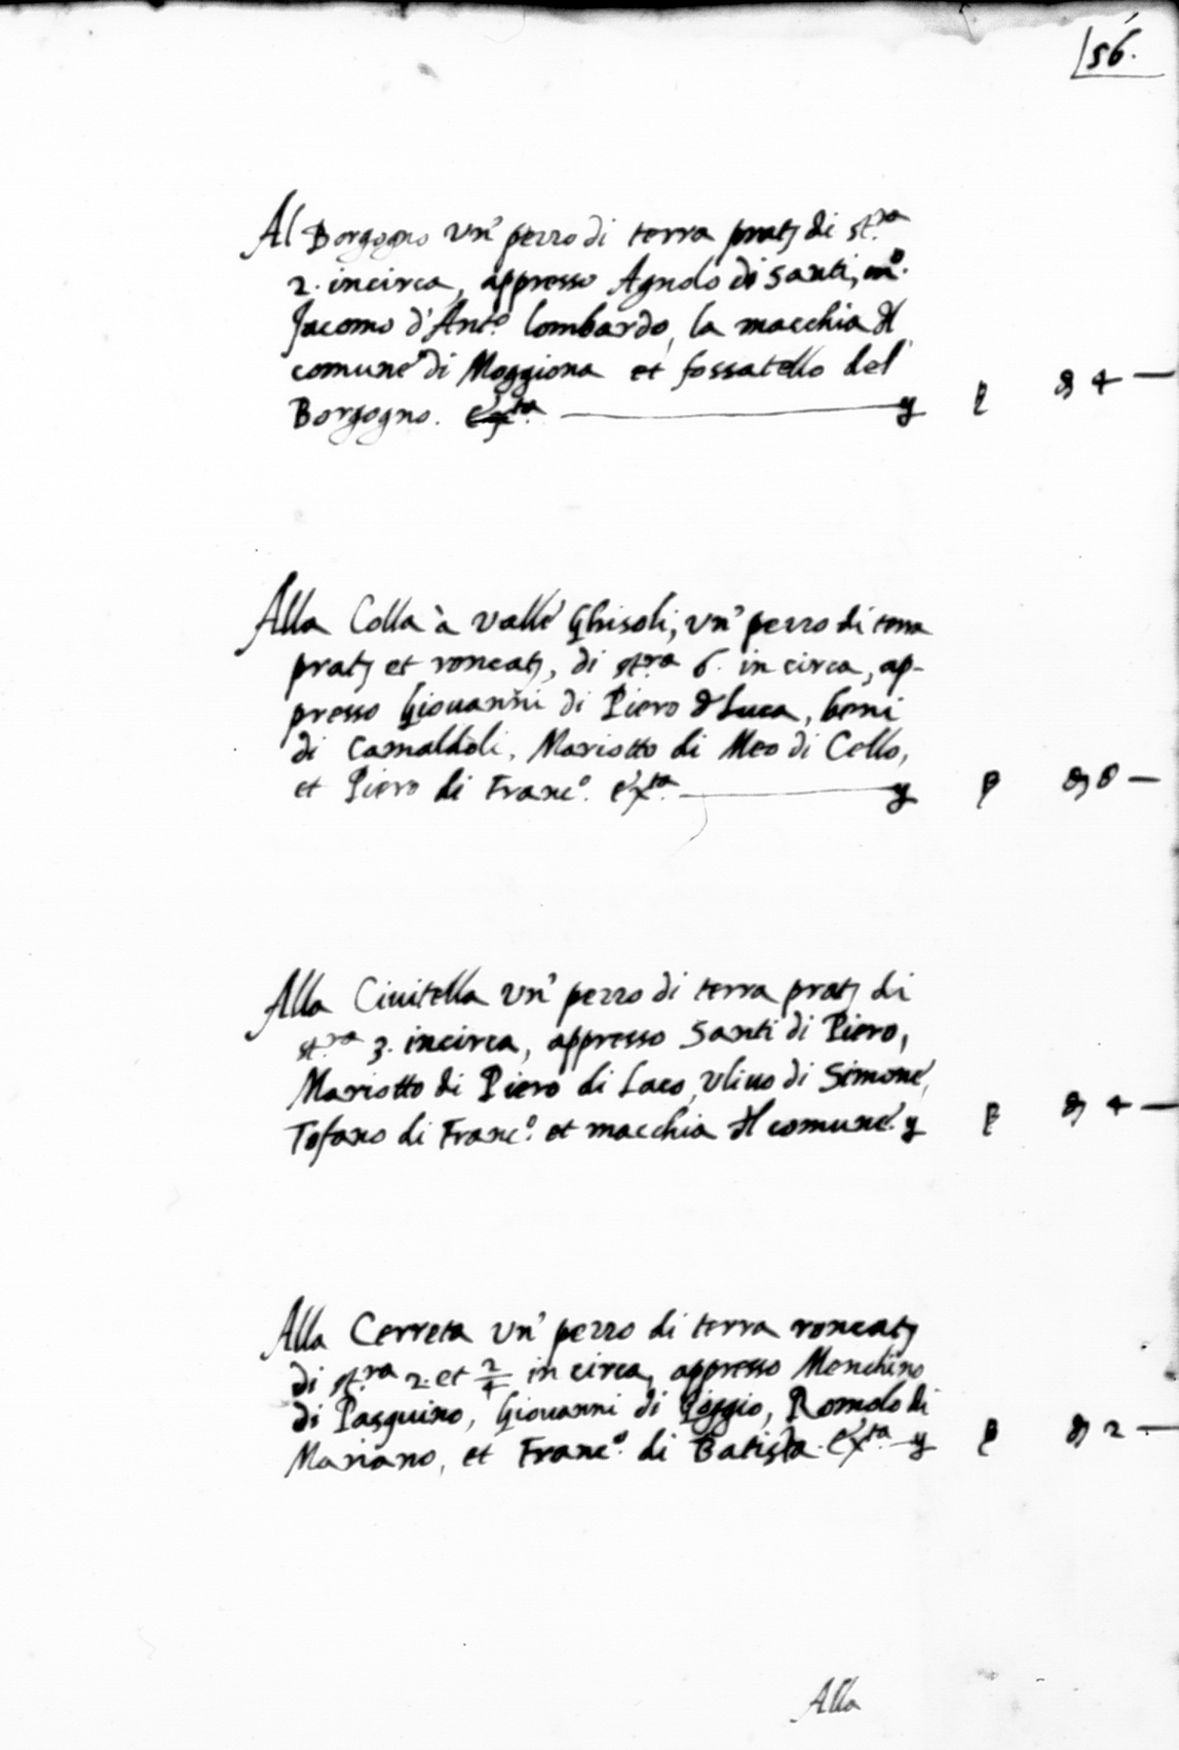 56.
Al Borgogno un' pezzo di terra prat. di st.ra
2. incirca, appresso Agnolo di Santi, m.o
Jacomo d'Ant.o lombardo, la macchia del
comune di Moggiona et fossatello del
Borgogno. &c.ta
4 —
Alla Colla à valle Ghisoli, un' pezzo di terra
prat. et roncat., di st.ra 6. in circa, ap-
presso Giouanni di Piero d Luca, beni
di Camaldoli, Mariotto di Meo di Cello,
et Piero di Franc.o &x.ta
8 —
Alla Ciuitella un' pezzo di terra prat. di
st.ra 3. incirca, appresso Santi di Piero,
Mariotto di Piero di Laco, Uliuo di Simone,
Tofano di Franc.o et macchia del comune.
4 —
Alla Cerreta un' pezzo di terra roncat.
di st.ra 2. et 2/4 in circa, appresso Menchino
di Pasquino, Giouanni di Goggio, Romolo di
Mariano, et Franc.o di Batista. &x.ta
2 —
Alla